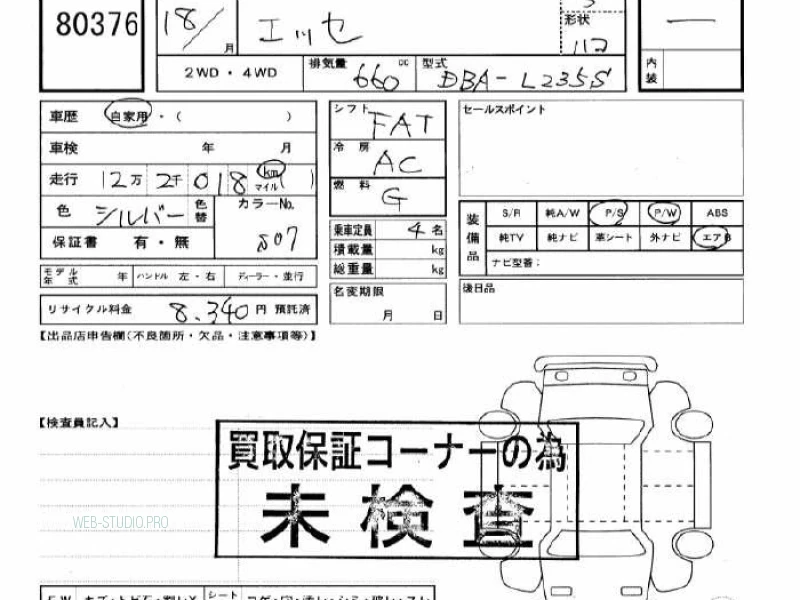 80376
18/ 月
エッセ
形状
112
2WD・4WD
排気量 660 cc
型式 DBA-L235S
内装
車歴 自家用・( )
車検 年 月
走行 12万 2千 018 km マイル ( )
色 シルバー 色替
カラーNo. S07
保証書 有・無
モデル年式 年 ハンドル 左・右 ディーラー・並行
リサイクル料金 8,340 円 預託済
シフト FAT
冷房 AC
燃料 G
乗車定員 4 名
積載量 kg
総重量 kg
名変期限
月 日
セールスポイント
装備品
S/R 純A/W P/S P/W ABS
純TV 純ナビ 革シート 外ナビ エアB
ナビ型番:
後日品
【出品店申告欄(不良箇所・欠品・注意事項等)】
【検査員記入】
買取保証コーナーの為
未検査
WEB-STUDIO.PRO
シート